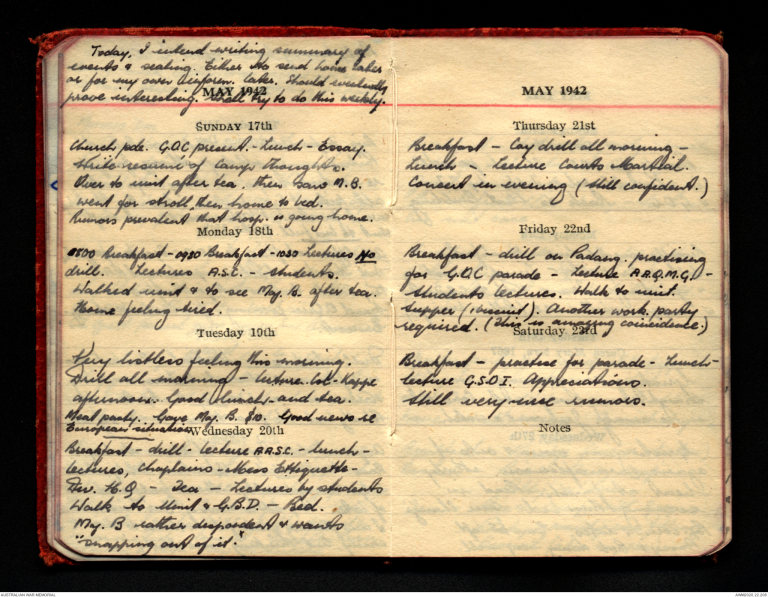 Today, I intend writing summary of
events & sealing. Either to send home later
or for my own inform. later. Should eventually
prove interesting. Shall try to do this weekly.
MAY 1942
SUNDAY 17th
Church pde. G.O.C present. - Lunch - Essay.
Write resumé of camp thoughts.
Over to unit after tea. Then saw M.B.
went for stroll then home to bed.
Rumors prevalent that hosp. is going home.
Monday 18th
0800 Breakfast - 0930 Breakfast - 1030 Lectures No
drill. Lectures A.S.C. - students.
Walked unit & to see Maj. B. after tea.
Home feeling tired.
Tuesday 19th
Very listless feeling this morning.
Drill all morning - lecture Col. Kappe
afternoon. Good lunch and tea.
Meat pasty. Gave Maj. B. $10. Good news re
European situation
Wednesday 20th
Breakfast - drill - lecture A.A.S.C. - lunch -
lectures, Chaplains - Mess Ettiquette -
Div. H.Q - Tea - Lectures by students
Walk to Unit & G.B.D. - Bed.
Maj. B rather despondent & wants
"snapping out of it."
MAY 1942
Thursday 21st
Breakfast - Coy drill all morning -
Lunch - Lecture Courts Martial.
Concert in evening (Still confident.)
Friday 22nd
Breakfast - drill on Padang. practising
for G.O.C parade - Lecture A.A.Q.M.G. -
Students lectures. Walk to unit.
Supper (1 biscuit). Another work party
required. (This is amazing coincidence.)
Saturday 23rd
Breakfast - practise for parade - Lunch -
lecture G.S.O.I. Appreciations.
Still very nice rumors.
Notes
AUSTRALIAN WAR MEMORIAL